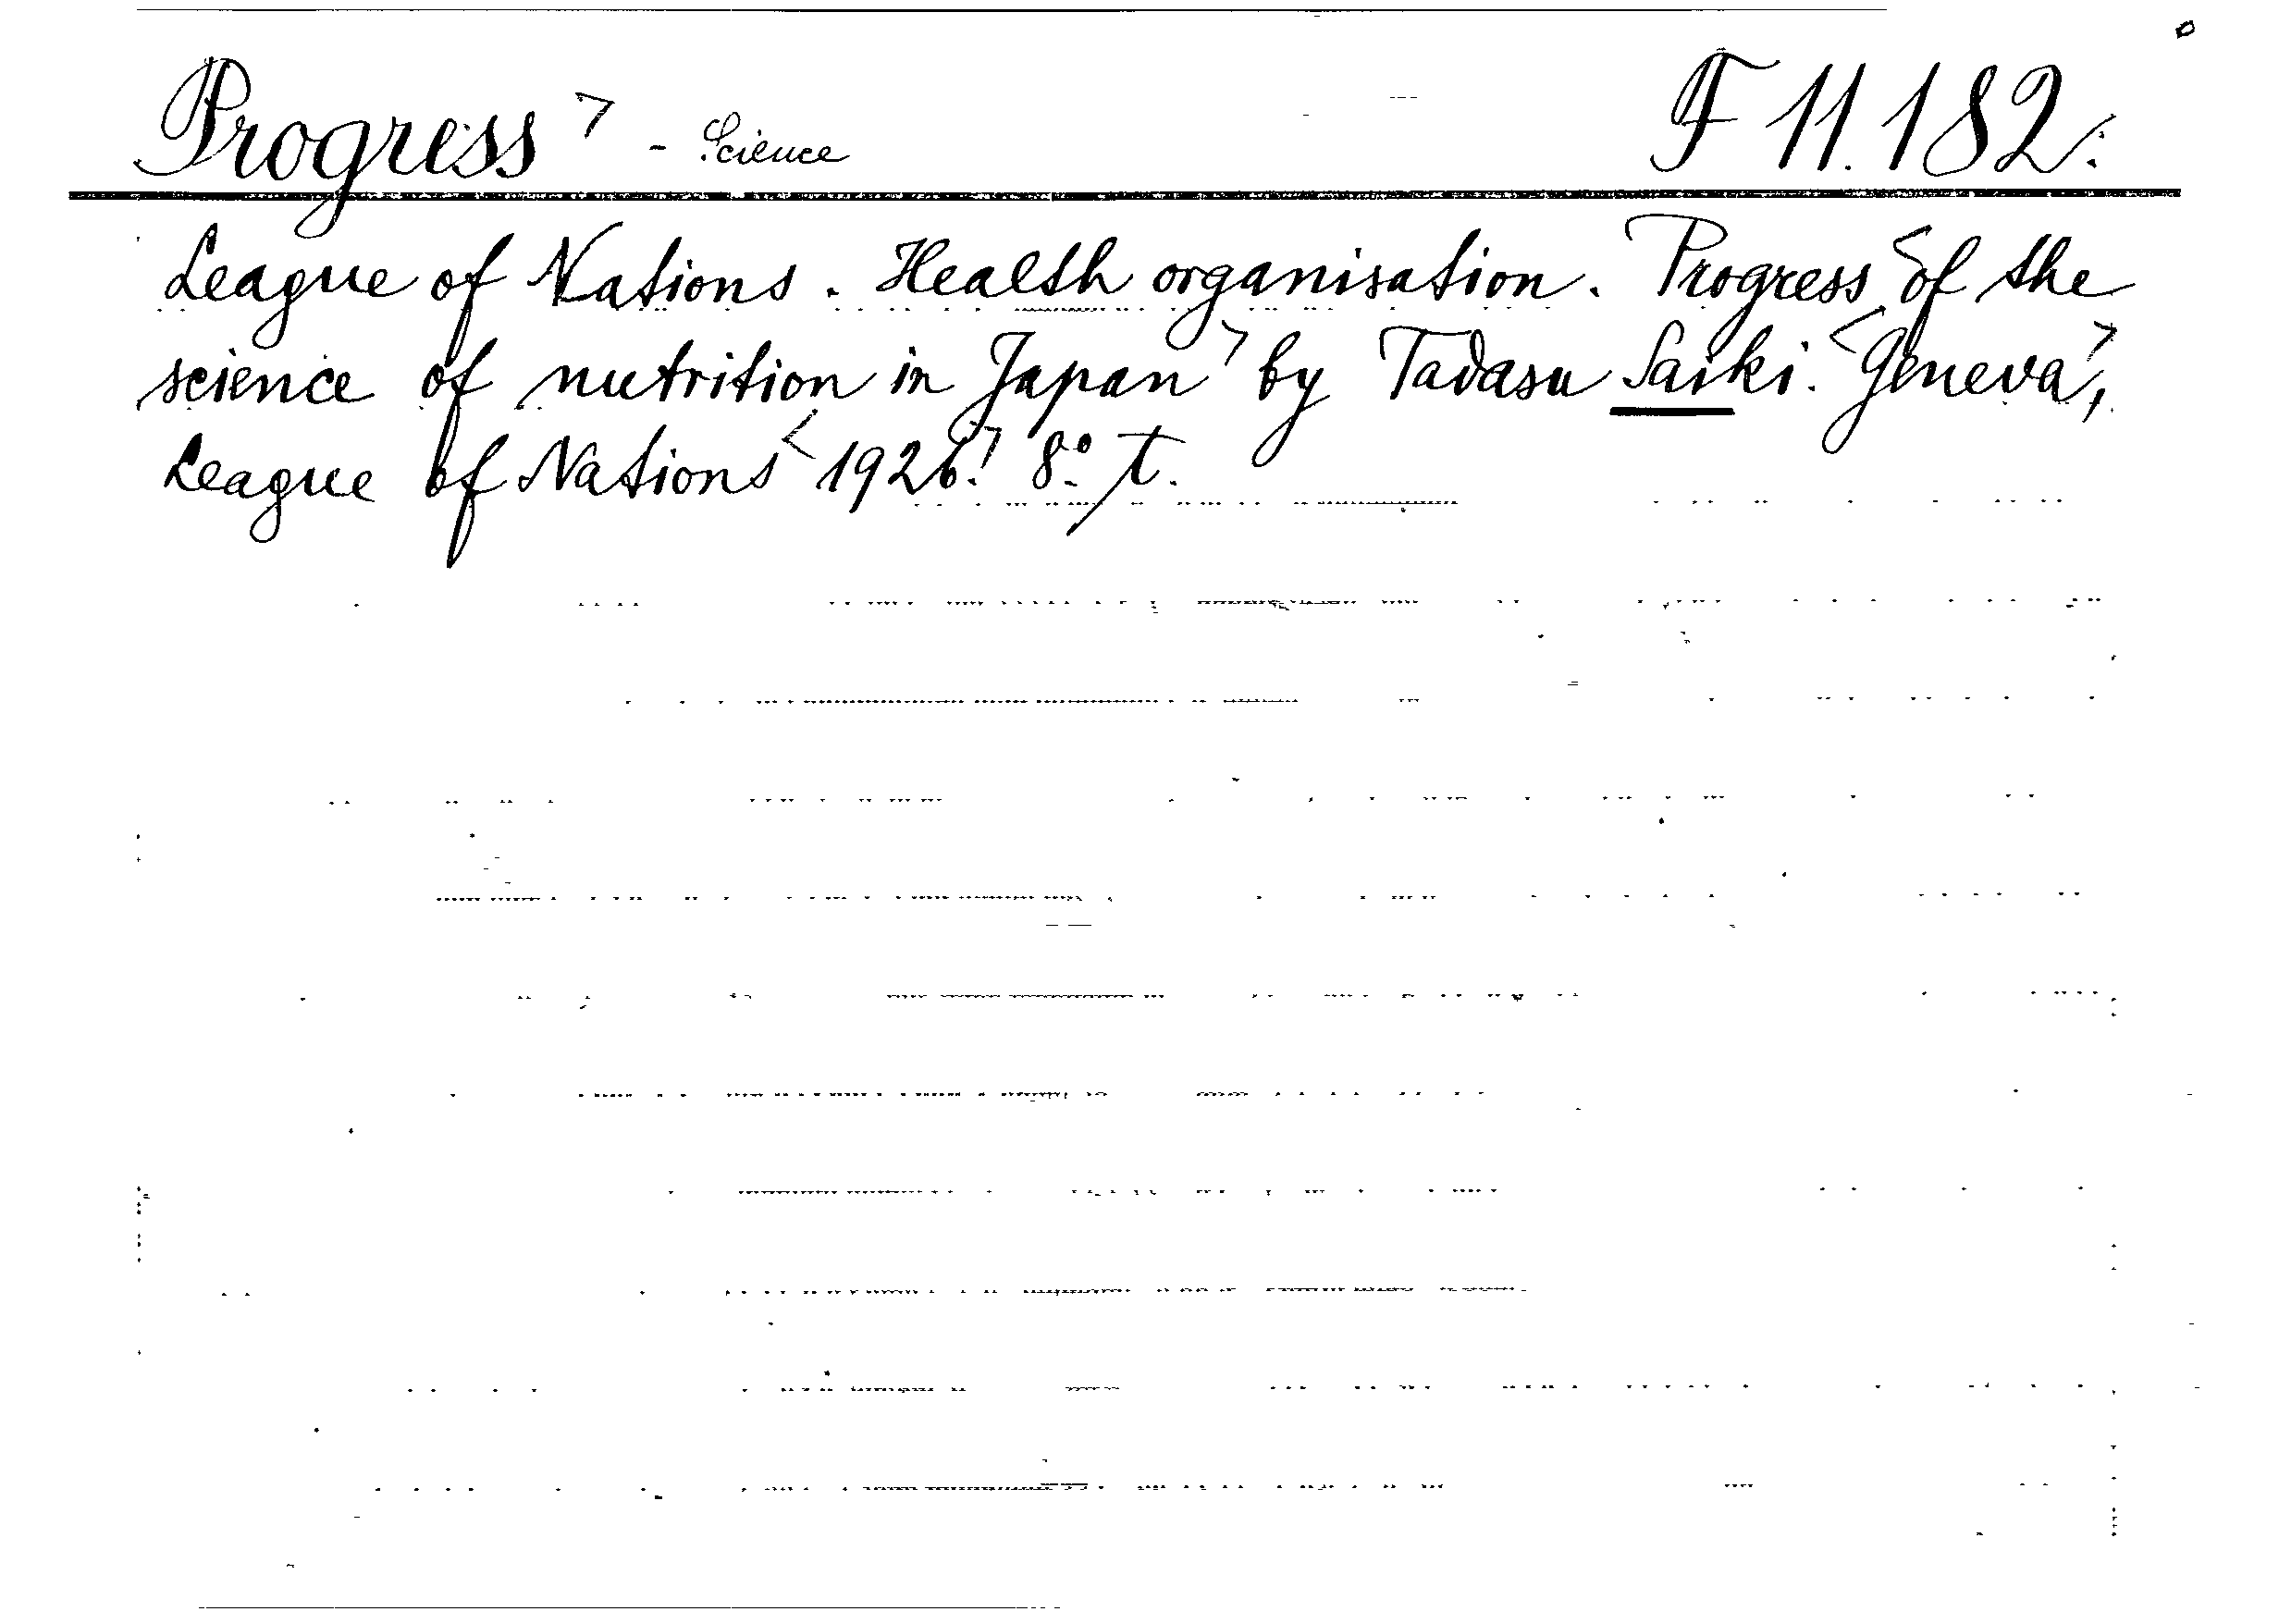 Progress> - Science F 11.182.
League of Nations. Health organisation. Progress <of the
science of nutrition in Japan> by Tadasu Saiki. <Geneva>,
League of Nations <1926.> 8º. T.